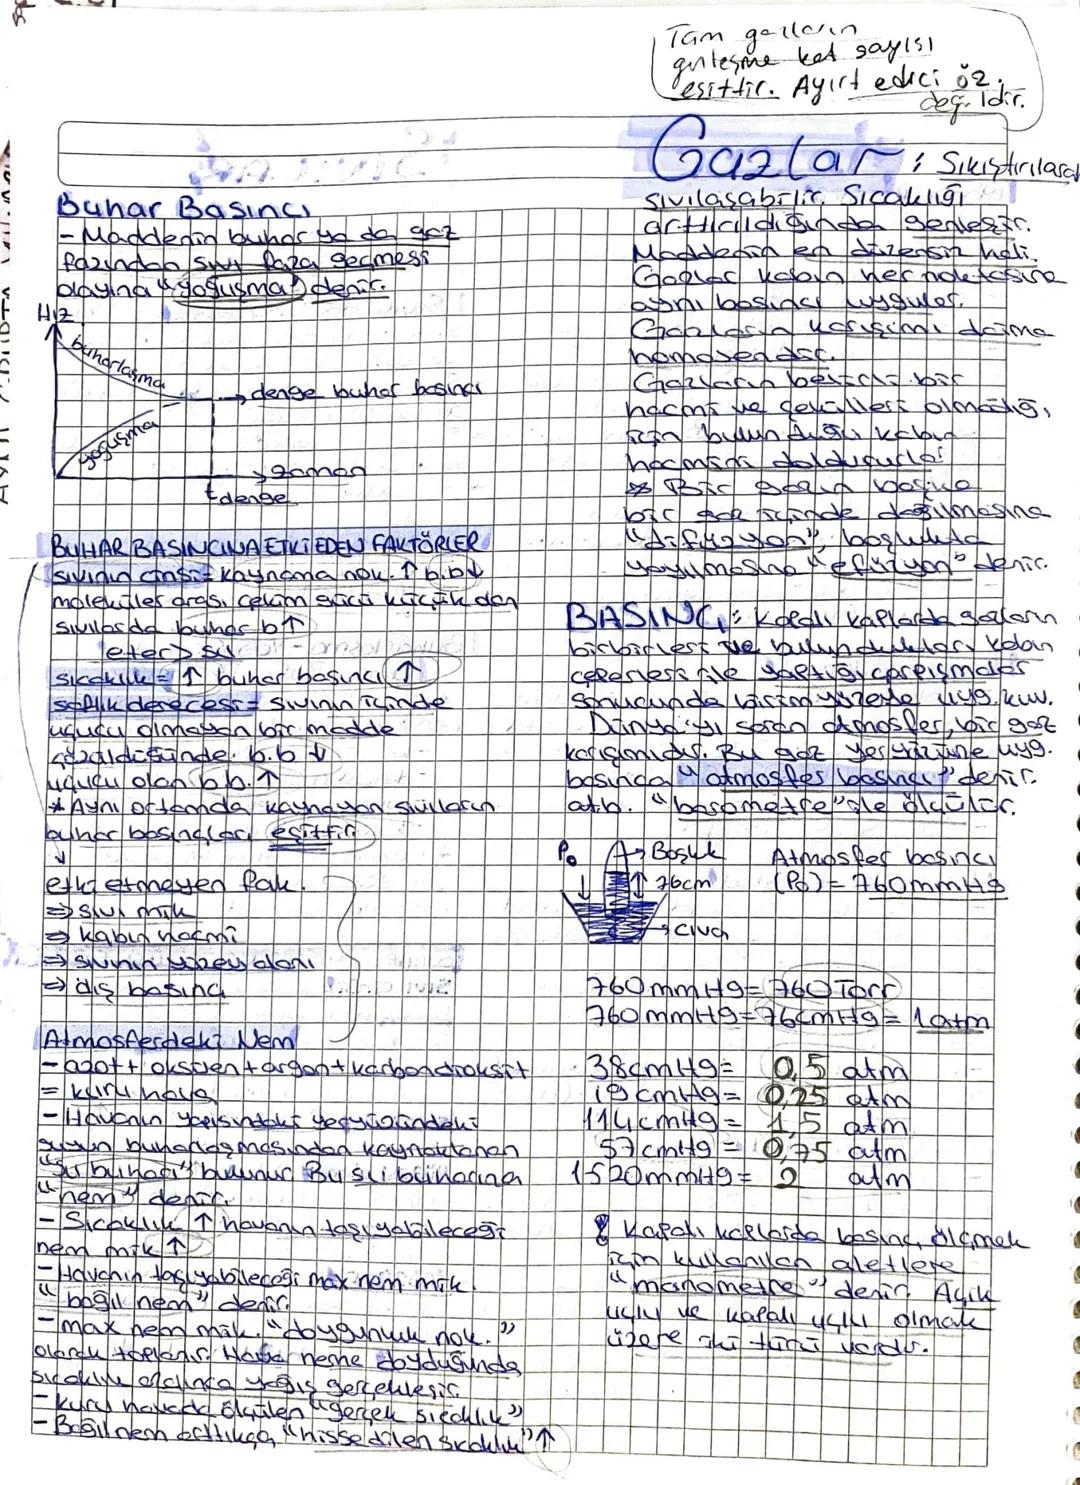 Tam gazların
genleşme kat sayısı
eşittir. Ayırt edici öz.
değildir.
Gazlar : Sıkıştırılarak
sıvılaşabilir. Sıcaklığı
arttırıldığında genleşir.
Maddenin en düzensiz hali.
Gazlar kabın her noktasına
aynı basıncı uygular.
Gazların karışımı daima
homojendir.
Gazların belirli bir
hacmi ve şekilleri olmadığı
için bulunduğu kabın
hacmini doldururlar
* Bir gazın başka
bir gaz içinde dağılmasına
"difüzyon", boşlukta
yayılmasına "efüzyon" denir.
Buhar Basıncı
- Maddenin buhar ya da gaz
fazından sıvı faza geçmesi
olayına "yoğuşma" denir.
Hız
buharlaşma
denge buhar basıncı
yoğuşma
zaman
tdenge
BUHAR BASINCINA ETKİ EDEN FAKTÖRLER
sıvının cinsi = kaynama nok. ↑ b.b ↓
moleküller arası çekim gücü küçük olan
sıvılarda buhar b ↑
eter > su
sıcaklık = ↑ buhar basıncı ↑
saflık derecesi = sıvının içinde
uçucu olmayan bir madde
çözüldüğünde b.b ↓
uçucu olan b.b. ↑
* Aynı ortamda kaynayan sıvıların
buhar basınçları eşittir.
↓
etki etmeyen fak.
⇒ sıvı mik
⇒ kabın hacmi
⇒ sıvının yüzey alanı
⇒ dış basınç
Atmosferdeki Nem
- azot + oksijen + argon + karbondioksit
= kuru hava
- Havanın yapısındaki yeryüzündeki
suyun buharlaşmasından kaynaklanan
"su buharı" bulunur Bu su buharına
"nem" denir.
- Sıcaklık ↑ havanın taşıyabileceği
nem mik ↑
- Havanın taşıyabileceği max nem mik.
"bağıl nem" denir.
- max nem mik. "doygunluk nok."
olarak toplanır. Hava neme doyduğunda
sıcaklık azalınca yağış gerçekleşir.
- kuru havada ölçülen "gerçek sıcaklık"
- Bağıl nem arttıkça "hissedilen sıcaklık" ↑
BASINÇ : Kapalı kaplarda gazların
birbirleri ve bulundukları kabın
çeperleri ile yaptığı çarpışmalar
sonucunda birim yüzeye uyg. kuv.
Dünya'yı saran atmosfer, bir gaz
karışımıdır. Bu gaz yeryüzüne uyg.
basınca "atmosfer basıncı" denir.
at.b. "barometre" ile ölçülür.
P₀
Boşluk
76cm
civa
Atmosfer basıncı
(P₀) = 760mmHg
760mmHg = 760 Torr
760mmHg = 76cmHg = 1 atm
38cmHg = 0,5 atm
19cmHg = 0,25 atm
114cmHg = 1,5 atm
57cmHg = 0,75 atm
1520mmHg = 2 atm
! Kapalı kaplarda basınç ölçmek
için kullanılan aletlere
"manometre" denir. Açık
uçlu ve kapalı uçlu olmak
üzere iki türü vardır.